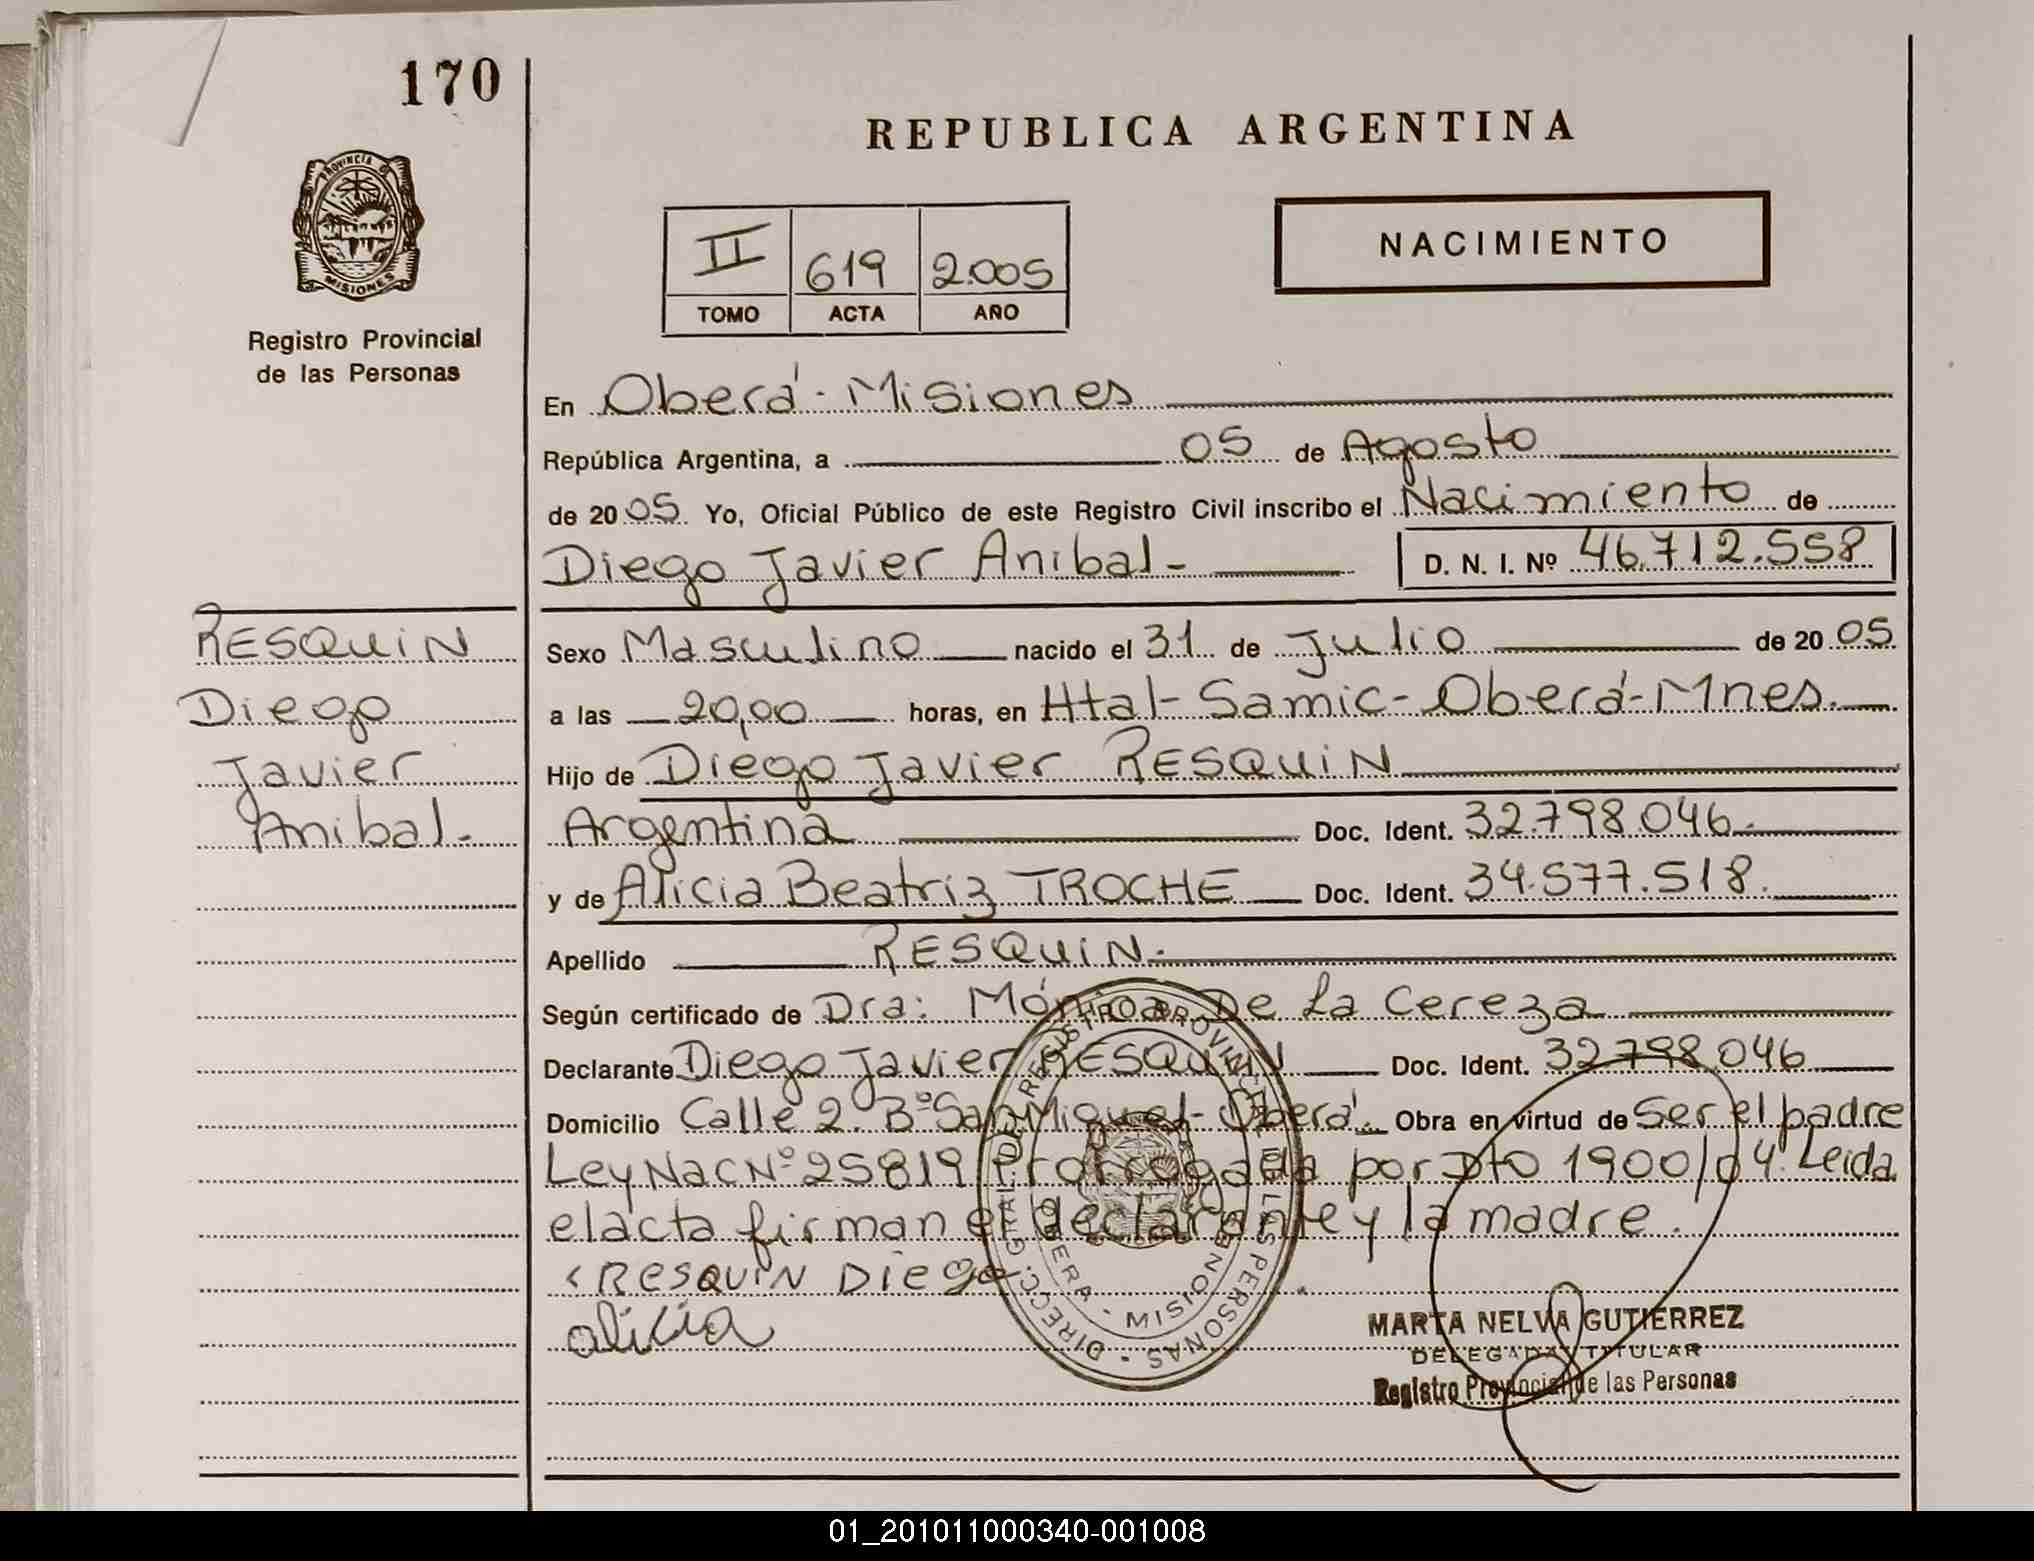 170
REPUBLICA ARGENTINA
PROVINCIA DE
MISIONES
Registro Provincial
de las Personas
II 619 2.005
TOMO ACTA AÑO
NACIMIENTO
En Oberá - Misiones
República Argentina, a 05 de Agosto
de 2005 Yo, Oficial Público de este Registro Civil inscribo el Nacimiento de
Diego Javier Anibal - D. N. I. Nº 46.712.558
RESQUIN
Diego
Javier
Anibal -
Sexo Masculino nacido el 31 de Julio de 2005
a las 20,00 horas, en Htal - Samic - Oberá - Mnes.
Hijo de Diego Javier RESQUIN
Argentina Doc. Ident. 32.798.046 -
y de Alicia Beatriz TROCHE Doc. Ident. 34.577.518.
Apellido RESQUIN -
Según certificado de Dra: Mónica De La Cereza
Declarante Diego Javier RESQUIN Doc. Ident. 32798.046
Domicilio Calle 2. Bº San Miguel - Oberá Obra en virtud de Ser el padre
Ley Nac Nº 25819 Prorrogada por Dto 1900/04. Leida
el acta firman el declarante y la madre.
RESQUIN DIEGO
alicia
DIRECC. GRAL. DEL REGISTRO PROVINCIAL DE LAS PERSONAS -
OBERA - MISIONES
MARTA NELVA GUTIERREZ
DELEGADA TITULAR
Registro Provincial de las Personas
01_201011000340-001008